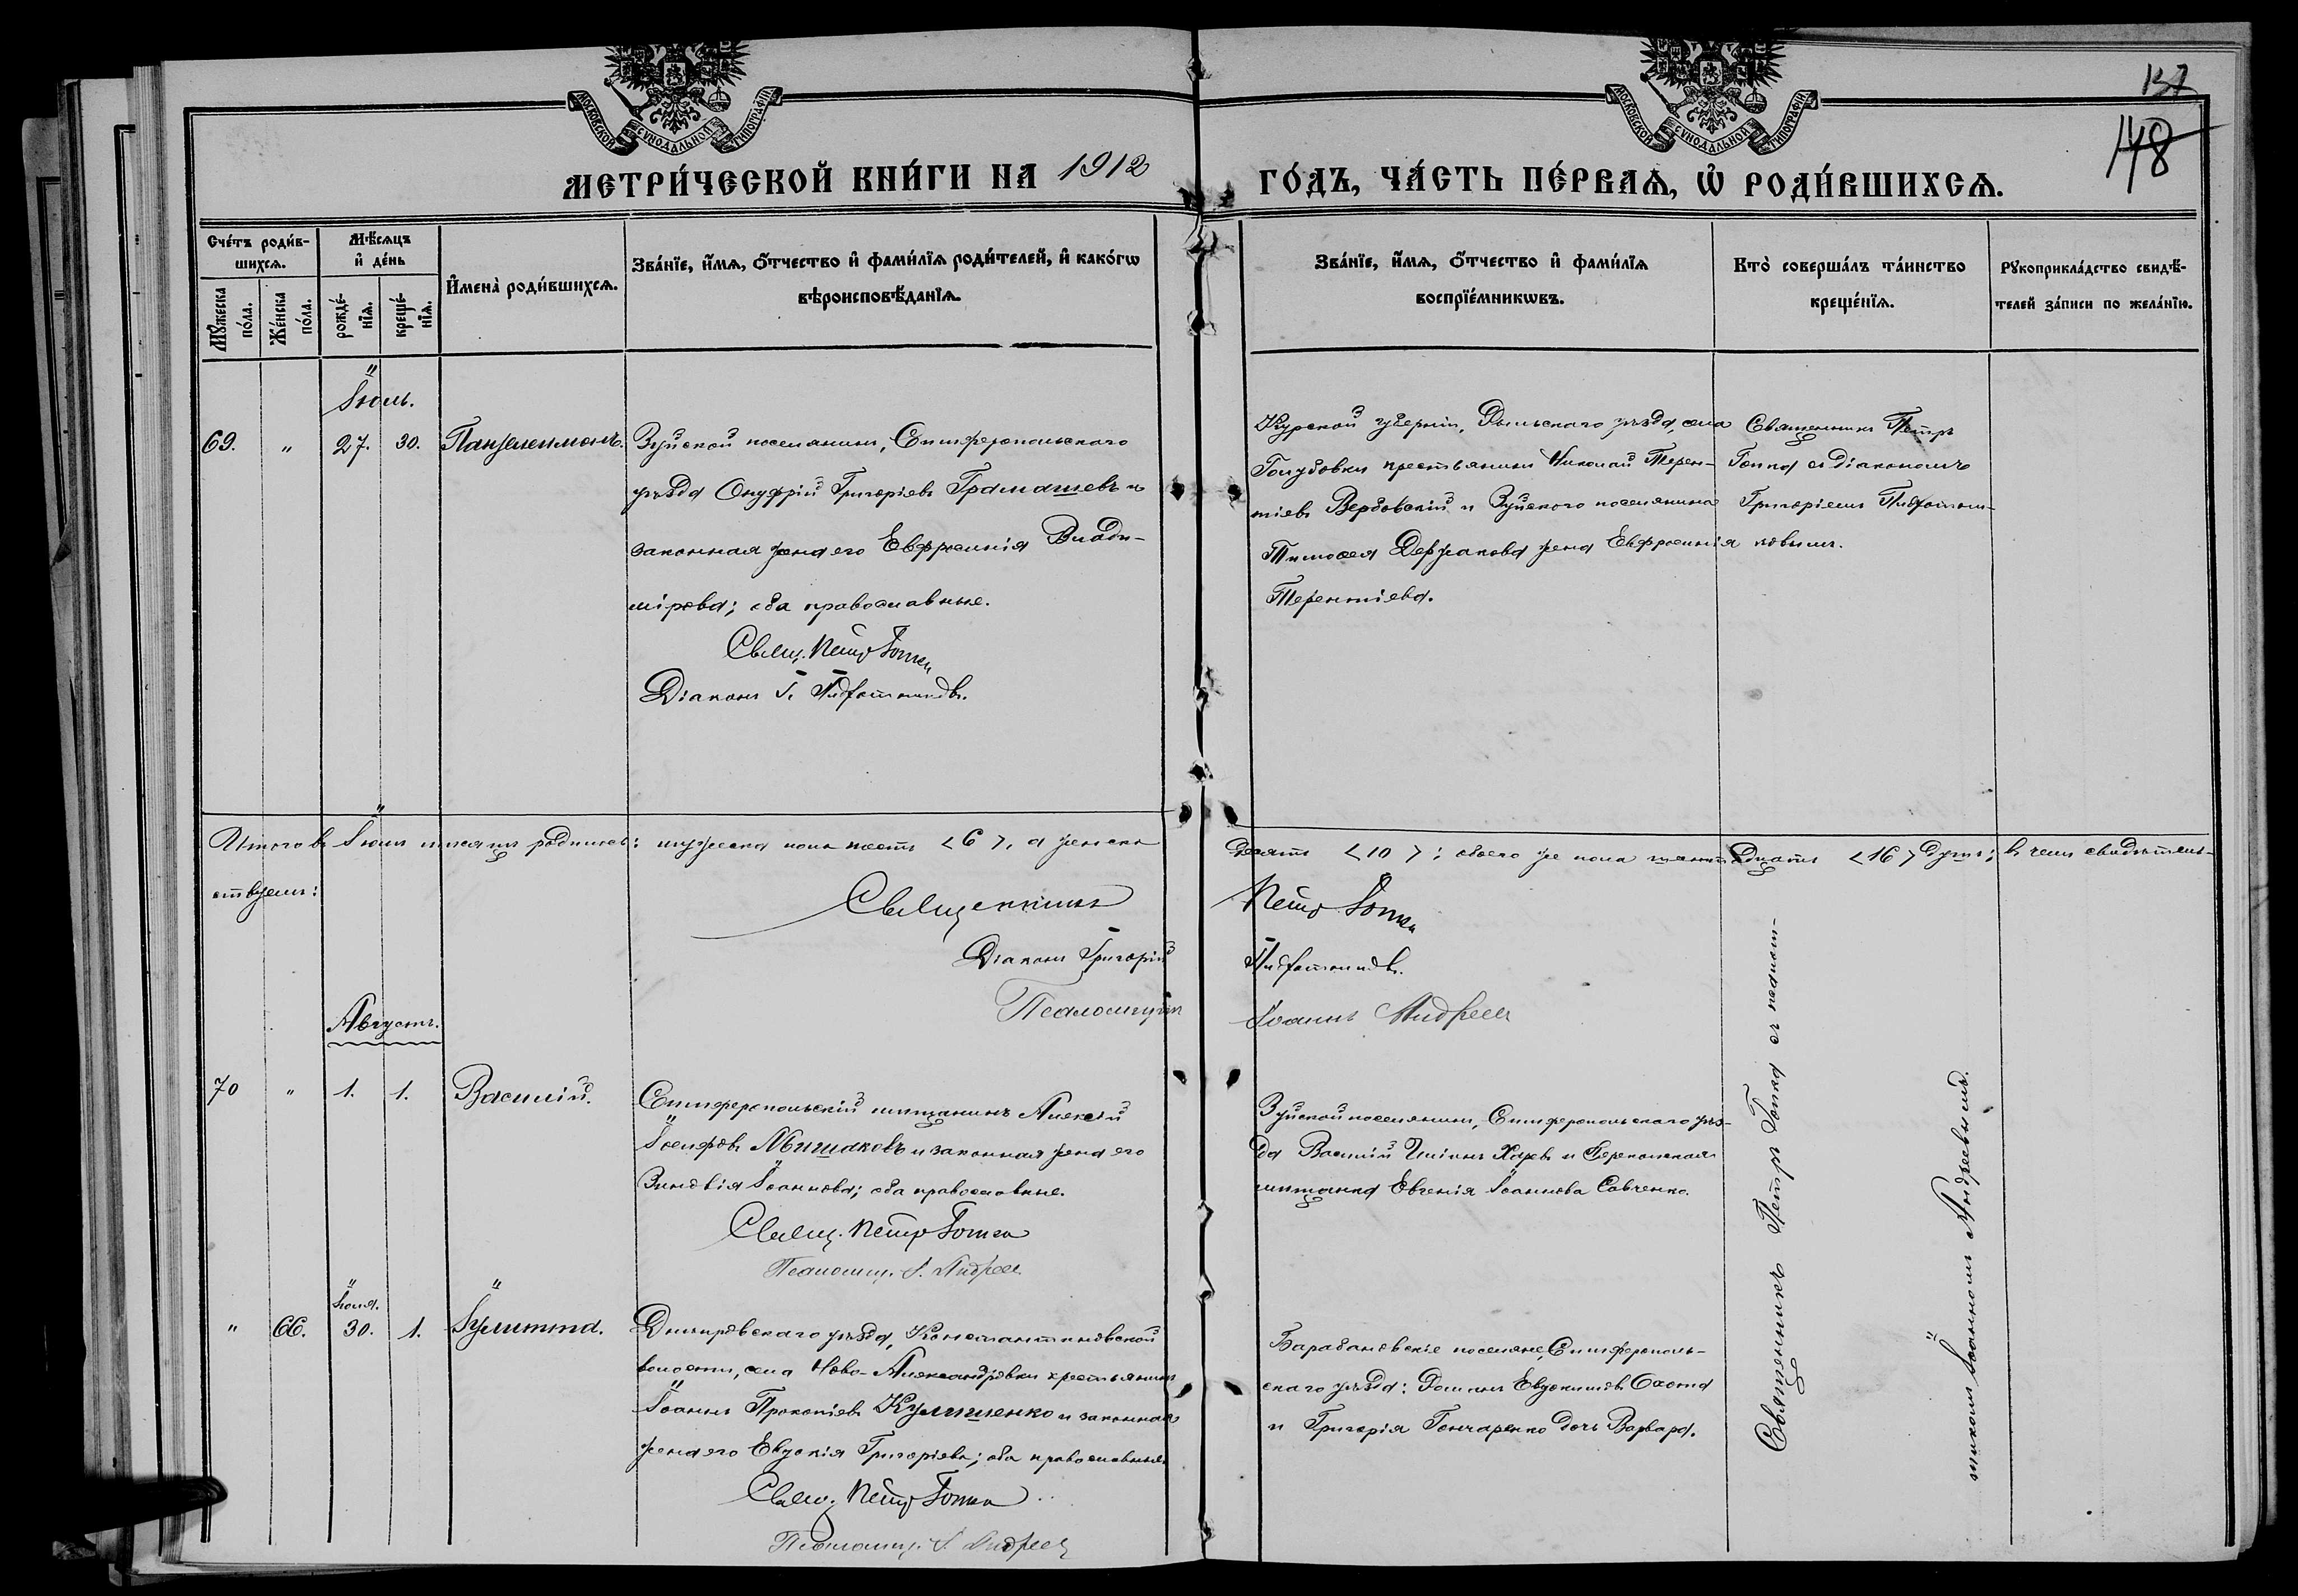 МОСКОВСКОЙ СѴНОДАЛЬНОЙ ТИПОГРАФІИ
МОСКОВСКОЙ СѴНОДАЛЬНОЙ ТИПОГРАФІИ
137
148
МЕТРИ́ЧЕСКОЙ КНИ́ГИ НА 1912 ГО́ДЪ, ЧА́СТЬ ПЕ́РВАѦ, Ѡ҆ РОДИ́ВШИХСѦ.
Сче́тъ роди́в-
шихсѧ.
Мѣ́сѧцъ
и҆ де́нь
Мꙋ́жеска
по́ла.
Же́нска
по́ла.
рожде́-
нїѧ.
креще́-
нїѧ.
И҆мена̀ роди́вшихсѧ.
Зва́нїе, и҆́мѧ, о҆́тчество и҆ фами́лїѧ роди́телей, и҆ како́гѡ
вѣроисповѣ́данїѧ.
Зва́нїе, и҆́мѧ, о҆́тчество и҆ фами́лїѧ
воспрїе́мникѡвъ.
Кто̀ соверша́лъ та́инство
креще́нїѧ.
Рꙋкоприкла́дство свидѣ́-
телей за́писи по жела́нїю.
Іюль.
69. " 27. 30. Пантелеимонъ.
Зуйской поселянинъ, Симферопольскаго
уѣзда Онуфрій Григоріевъ Грамашевъ и
законная жена его Евфросинія Влади-
мірова; оба православные.
Свящ. Петръ Гопка
Діаконъ Г.
Курской губерніи, Рыльскаго уѣзда, села
Голубовки крестьянинъ Николай Терен-
тіевъ Вербовскій и Зуйскаго поселянина
Тимоѳея Держакова жена Евфросинія
Терентіева.
Священникъ Петръ
Гопка съ діакономъ
Григоріемъ
ковымъ.
Итого въ Іюлѣ мѣсяцѣ родилось: мужеска пола шесть <6>, а женска десять <10>; обоего же пола шестнадцать <16> душъ; въ чемъ свидѣтель-
ствуемъ:
Священникъ Петръ Гопка
Діаконъ Григорій
Псаломщикъ Іоаннъ Андреевъ
Августъ.
70 " 1. 1. Василій.
Симферопольскій мѣщанинъ Алексѣй
Іосифовъ Мышаковъ и законная жена его
Зиновія Іоаннова; оба православные.
Свящ. Петръ Гопка
Псаломщ. І. Андреевъ
Зуйской поселянинъ, Симферопольскаго уѣз-
да Василій Харевъ и Перекопская
мѣщанка Евгенія Іоаннова Савченко.
Іюля.
" 66. 30. 1. Іулитта.
Днѣпровскаго уѣзда, Константиновской
волости, села Ново-Александровки крестьянинъ
Іоаннъ Прокопіевъ Кулишенко и законная
жена его Евдокія Григоріева; оба православные.
Свящ. Петръ Гопка
Псаломщ. І. Андреевъ
Барабановскіе поселяне, Симферополь-
скаго уѣзда: Евдокимовъ Охота
и Григорія Гончаренко дочь Варвара.
Священникъ Петръ Гопка съ псалом-
щикомъ Іоанномъ Андреевымъ.